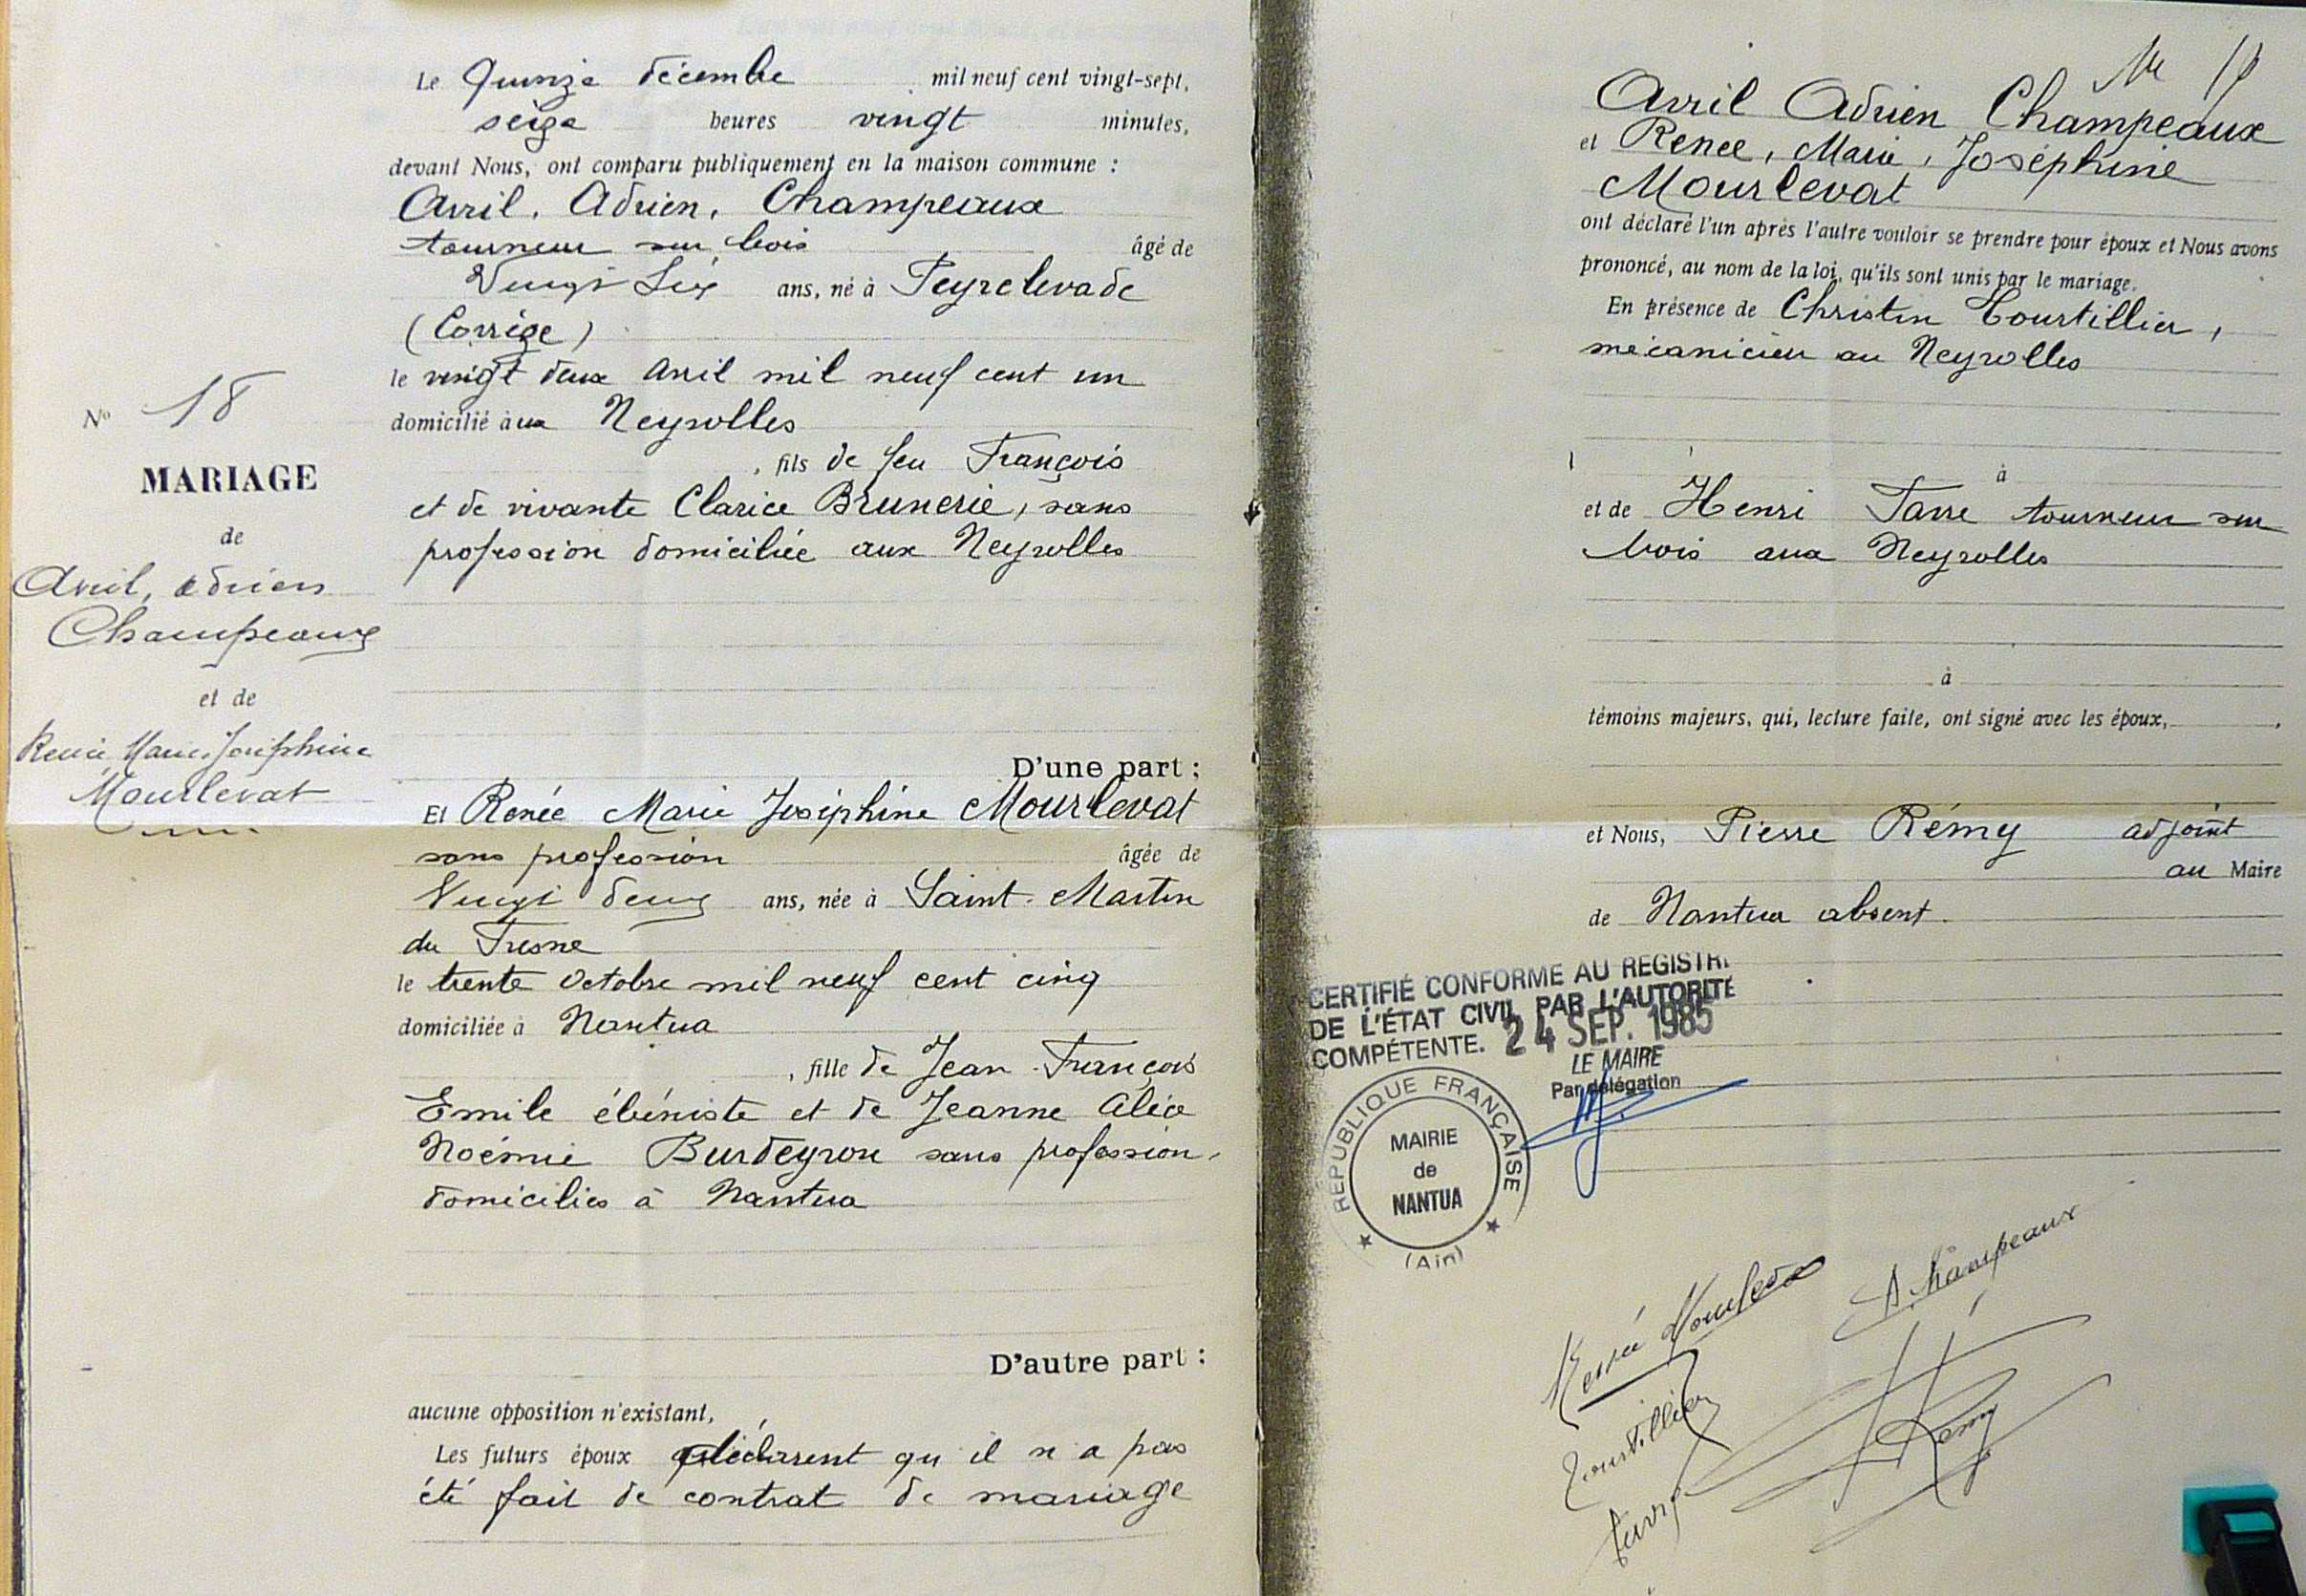 Le Quinze décembre mil neuf cent vingt-sept,
seize heures vingt minutes,
devant Nous, ont comparu publiquement en la maison commune :
Avril, Adrien, Champeaux
tourneur sur bois âgé de
Vingt Six ans, né à Peyrelevade
(Corrèze)
le vingt deux avril mil neuf cent un
domicilié aux Neyrolles
, fils de feu François
et de vivante Clarice Brunerie, sans
profession domiciliée aux Neyrolles
N° 18
MARIAGE
de
Avril, Adrien
Champeaux
et de
Renée, Marie, Joséphine
Mourlevat
D'une part :
Et Renée Marie Joséphine Mourlevat
sans profession âgée de
Vingt deux ans, née à Saint-Martin
du Fresne
le trente Octobre mil neuf cent cinq
domiciliée à Nantua
, fille de Jean-François
Emile ébéniste et de Jeanne Alice
Noémie Burdeyron sans profession,
domiciliés à Nantua
D'autre part :
aucune opposition n'existant,
Les futurs époux déclarent qu'il n'a pas
été fait de contrat de mariage
Avril Adrien Champeaux
et Renée, Marie, Joséphine
Mourlevat
ont déclaré l'un après l'autre vouloir se prendre pour époux et Nous avons
prononcé, au nom de la loi, qu'ils sont unis par le mariage.
En présence de Christin Tourtillier,
mécanicien au Neyrolles
à
et de Henri Favre tourneur sur
bois aux Neyrolles
à
témoins majeurs, qui, lecture faite, ont signé avec les époux, ,
et Nous, Pierre Rémy adjoint
au Maire
de Nantua absent.
CERTIFIÉ CONFORME AU REGISTR
DE L'ÉTAT CIVIL PAR L'AUTORITÉ
COMPÉTENTE. 24 SEP. 1985
LE MAIRE
Par délégation
RÉPUBLIQUE FRANÇAISE
MAIRIE
de
NANTUA
(Ain)
Renée Mourlevat
A. Champeaux
Tourtillier
Rémy
Favre